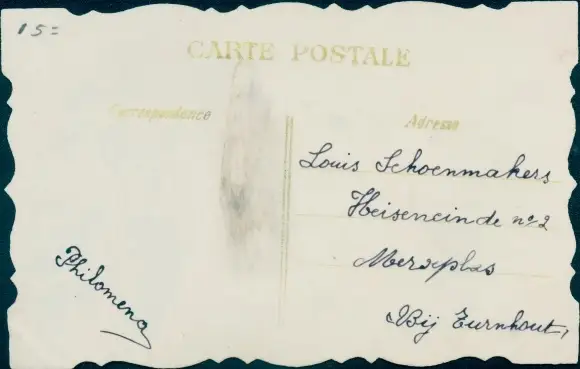 15=
CARTE POSTALE
Correspondence
Adresse
Louis Schoenmakers
Heiseneinde nº2
Merxplas
Bij Turnhout,
Philomena